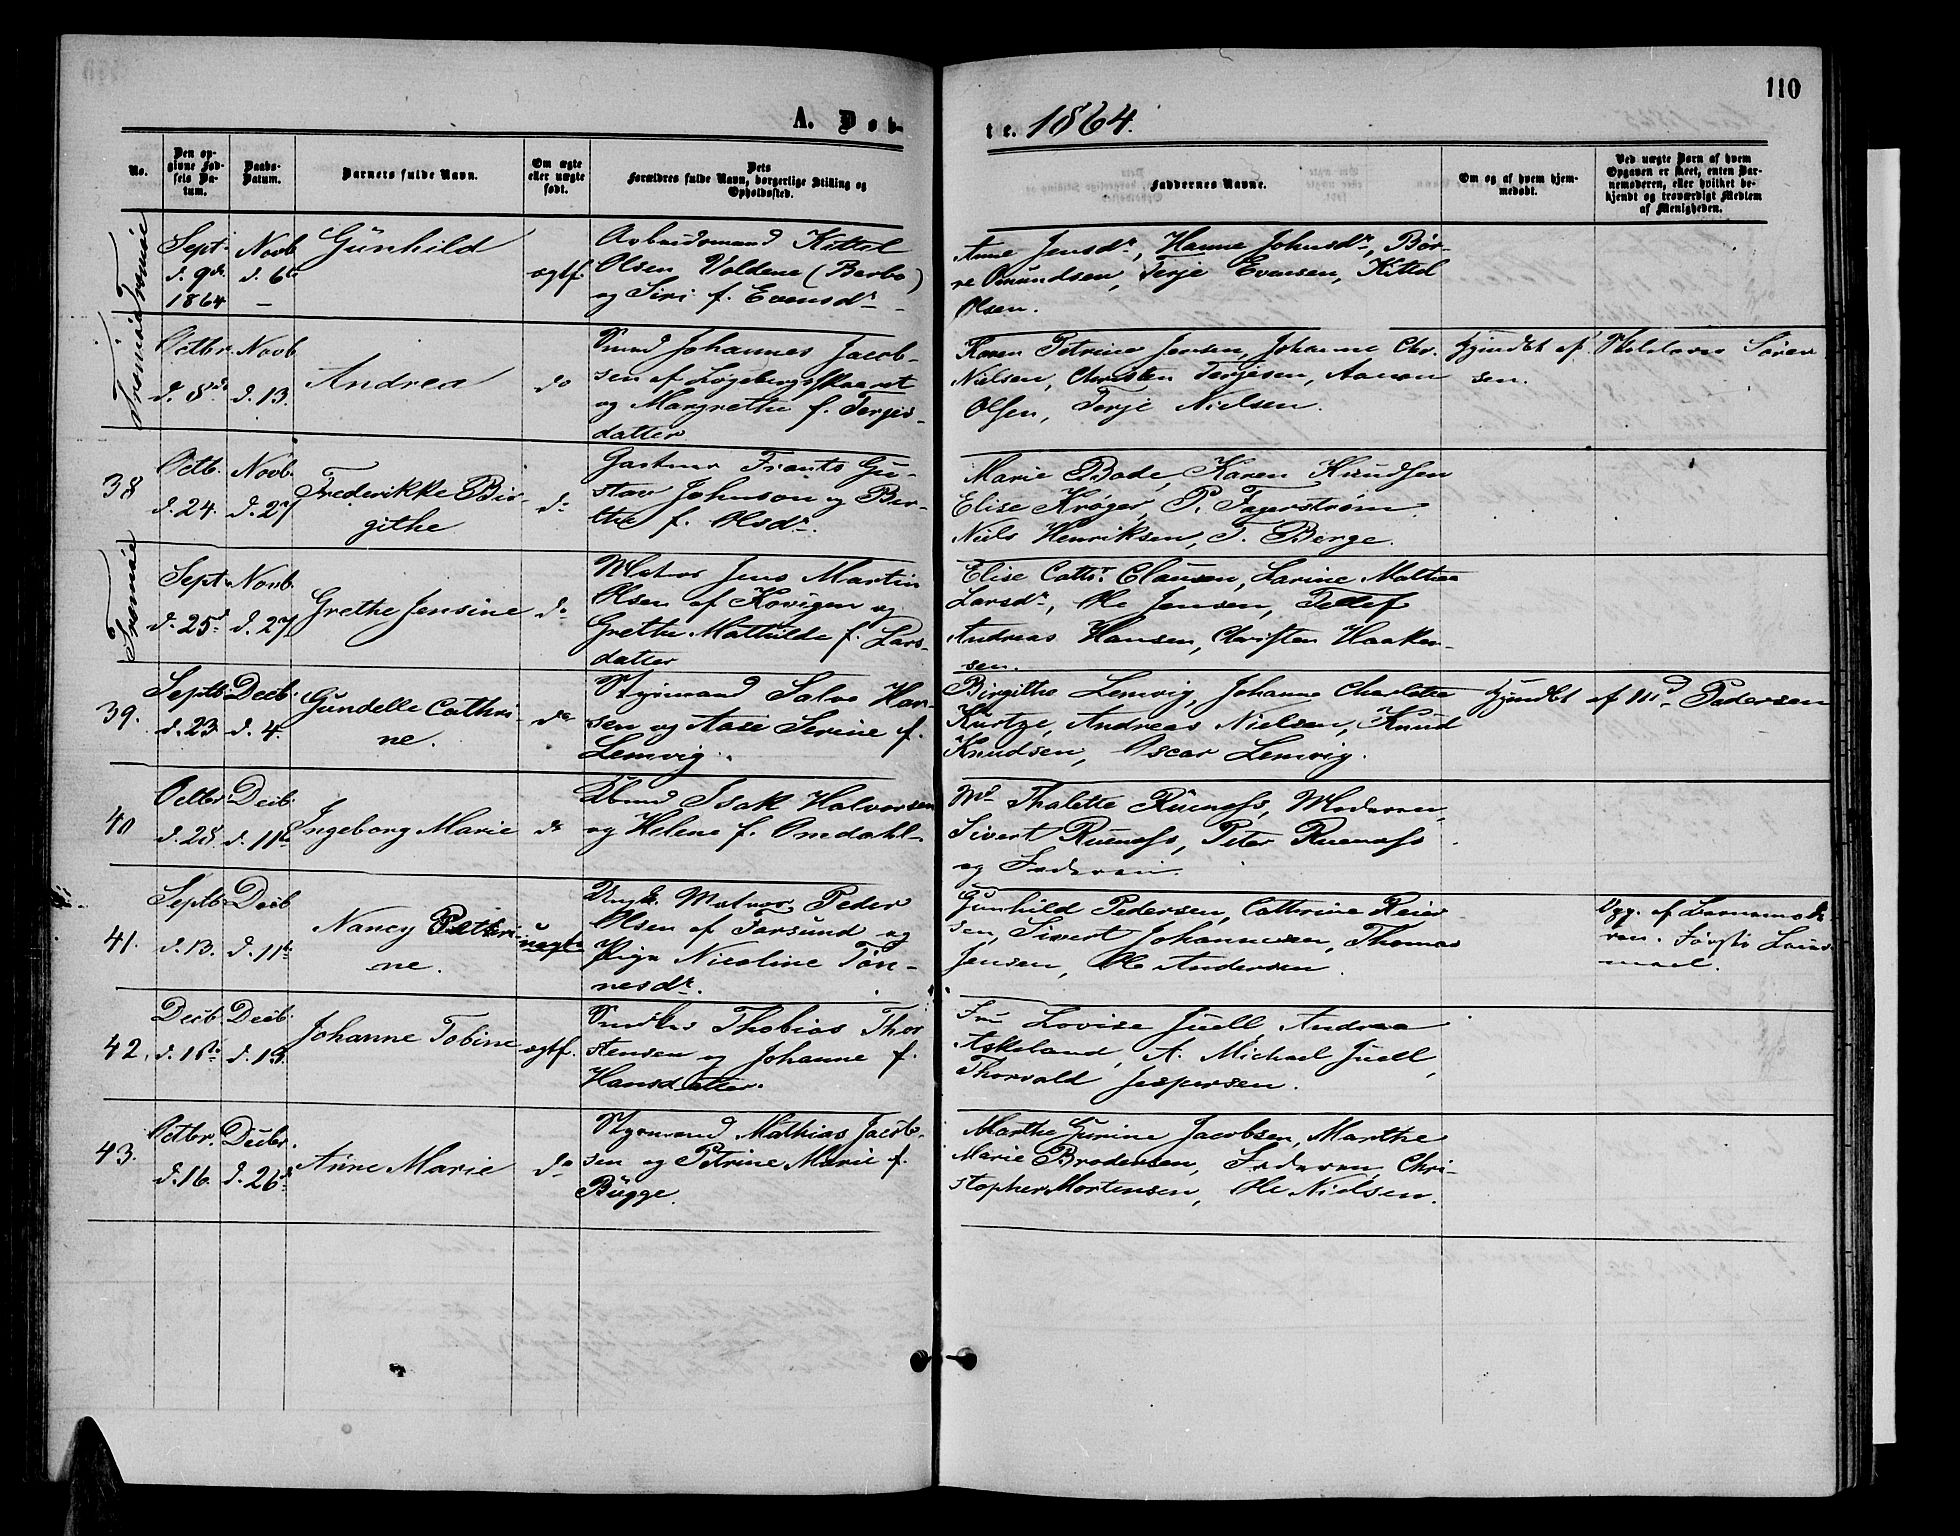 110
A. Døb-
te. 1864.
No.
Den op-
givne Fød-
sels Da-
tum.
Daabs-
Datum.
Barnets fulde Navn.
Om ægte
eller uægte
født.
Dets
Forældres fulde Navn, borgerlige Stilling og
Opholdssted.
Faddernes Navne.
Om og af hvem hjem-
medøbt.
Ved uægte Børn af hvem
Opgaven er skeet, enten Bar-
nemoderen, eller hvilket be-
kjendt og troværdigt Medlem
af Menigheden.
Tromöe
Sept.
d. 9de
1864
Novb
d. 6te
Gunhild
ægtf.
Arbeidsmand Kittel
Olsen Voldene (Barbo)
og Siri f. Evensdr
Anne Jensdr, Hanne Johnsdr, Bør-
re Omundsen, Terje Evensen, Kittel
Olsen.
Tromöe
Octbr.
d. 8de
Novb
d. 13.
Andrea
do
Smed Johannes Jacob-
sen af Løgebergsskaaret
og Margrethe f. Terjes-
datter
Karen Petrine Jensen, Johanne Chr.
Nielsen, Christen Terjesen, Aanon
Olsen, Terje Nielsen.
Hjmdbt af Skolelærer Sören-
sen.
38
Octb.
d. 24.
Novb.
d. 27
Frederikke Bir-
githe
do
Gartner Frants Gu-
stav Johnson og Ber-
the f. Olsdr.
Marie Bode, Karen Knudsen
Elise Krøger, P. Fagerstrøm
Niels Henriksen, T. Berge.
Tromöe
Sept.
d. 25de
Novb.
d. 27
Grethe Jensine
do
Matros Jens Martin
Olsen af Kovigen og
Grethe Mathilde f. Lars-
datter
Elise Cathr. Clausen, Larine Mathea
Larsdr, Ole Jensen, Tellef
Andreas Hansen, Christen Haaken-
sen.
39.
Septb.
d. 23.
Decb.
d. 4.
Gundelle Cathri-
ne.
do
Styrmand Salve Han-
sen og Aase Serine f.
Lemvig.
Birgithe Lemvig, Johanne Charlotte
Kurtze, Andreas Nielsen, Knud
Knudsen, Oscar Lemvig.
Hjmdbt af Md. Pedersen
40
Octbr.
d. 28.
Decb.
d. 11te
Ingeborg Marie
do
Isak Halvorsen
og Helene f. Omdahl
Md Thalette Ruenæss, Moderen,
Sivert Ruenæss, Peter Ruenæss
og Faderen.
41.
Septb.
d. 13.
Decb
d. 11te
Nancy Petri-
ne.
uægte
Ungk. Matros Peder
Olsen af Farsund og
Pige Nicoline Tøn-
nesdr.
Gunhild Pedersen, Cathrine Reier-
sen, Sivert Johannesen, Thomas
Jensen, Ole Andersen.
Opg. af Barnemode-
ren. Første Leiers-
maal.
42.
Decb.
d. 1ste
Decb.
d. 19.
Johanne Tobine
ægtf.
Snedker Thobias Thor-
stensen og Johanne f.
Hansdatter.
Fru Lovise Juell, Andrea
Askeland, A. Michael Juell,
Thorvald Jespersen.
43.
Octbr.
d. 16.
Decbr.
d. 26de
Anne Marie
do
Styrmand Mathias Jacob-
sen og Petrine Marie f.
Bugge.
Marthe Gurine Jacobsen, Marthe
Marie Brodersen, Faderen, Chri-
stopher Mortensen, Ole Nielsen.